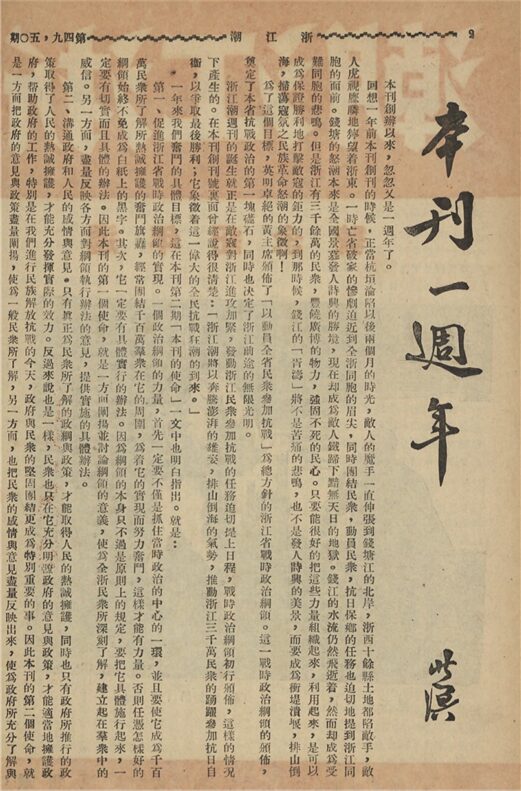 9
浙江潮
第四九，五〇期
本刊一週年
本刊創辦以來，忽忽又是一週年了。
回想一年前本刊創刊的時候，正當杭垣淪陷以後兩個月的時光，敵人的魔手一直伸張到錢塘江的北岸，浙西十餘縣土地都陷敵手，敵
人虎視鷹瞵地獰望着浙東。一時亡省破家的慘劇迫近到全浙同胞的眉尖，同時團結民衆，動員民衆，抗日保鄉的任務也迫切地提到浙江同
胞的面前。錢塘的怒潮本來是全國景慕發人詩興的勝境，現在却成為敵人鐵蹄下黯無天日的地獄。錢江的水流仍然飛逝着，然而却成為受
難同胞的悲鳴。但是浙江有三千餘萬的民衆，豐饒廣博的物力，強固不死的民心。只要能很好的把這些力量組織起來，利用起來，是可以
成為保證勝利地打擊敵寇的鉅力的，到那時候，錢江的「胥濤」將不是苦痛的悲鳴，也不是發人詩興的美景，而要成為衝堤潰堰，排山倒
海，掃蕩寇氛之民族革命怒潮的象徵啊！
為了這個目標，英明卓絕的黃主席頒佈了「以動員全省民衆參加抗戰」為總方針的浙江省戰時政治綱領。這一戰時政治綱領的頒佈，
奠定了本省抗戰政治的第一塊礎石，同時也決定了浙江前途的無限光明。
浙江潮週刊的誕生就正是在敵寇對浙江進攻加緊，發動浙江民衆參加抗戰的任務迫切提上日程，戰時政治綱領初行頒佈，這樣的情況
下產生的。在本刊創刊號裏面曾經說得很清楚：「浙江潮將以奔騰澎湃的雄姿，排山倒海的氣勢，推動浙江三千萬民衆的踴躍參加抗日自
衛，以爭取最後勝利；它象徵着這一偉大的全民抗戰狂潮的到來。」
一年來我們奮鬥的具體目標，這在本刊第二期「本刊的使命」一文中也明白指出。就是：
第一、促進浙江省戰時政治綱領的實現。一個政治綱領的力量，首先一定要不僅是抓住當時政治的中心的一環，並且要使它成為千百
萬民衆所了解所熱誠擁護的奮鬥旗纛，經常團結千百萬羣衆在它的周圍，為着它的實現而努力奮鬥，這樣才能有力量。否則任憑怎樣好的
綱領始終不免成為白紙上的黑字。其次，它一定要有具體實行的辦法。因為綱領的本身只不過是原則上的規定，要把它具體施行起來，一
定要有切實而且具體的辦法。因此本刊的第一個使命，就是一方面闡揚並討論綱領的意義，使為全浙民衆所深刻了解，建立起在羣衆中的
威信。另一方面，盡量反映各方面對綱領執行辦法的意見，提供實施的具體辦法。
第二、溝通政府和人民的感情與意見。只有眞正為民衆所了解的政綱與政策，才能取得人民的熱誠擁護，同時也只有政府所推行的政
策取得了人民的熱誠擁護，才能充分發揮實際的效力。反過來說也是一樣，民衆也只在它充分明澄政府的意見與政策，才能適當地擁護政
府，帮助政府的工作，特別是在我們進行民族解放抗戰的今天，政府與民衆的堅固團結更成為特別重要的事。因此本刊的第二個使命，就
是一方面把政府的意見與政策盡量闡揚，使為一般民衆所了解，另一方面，也把民衆的感情與意見盡量反映出來，使為政府所充分了解與